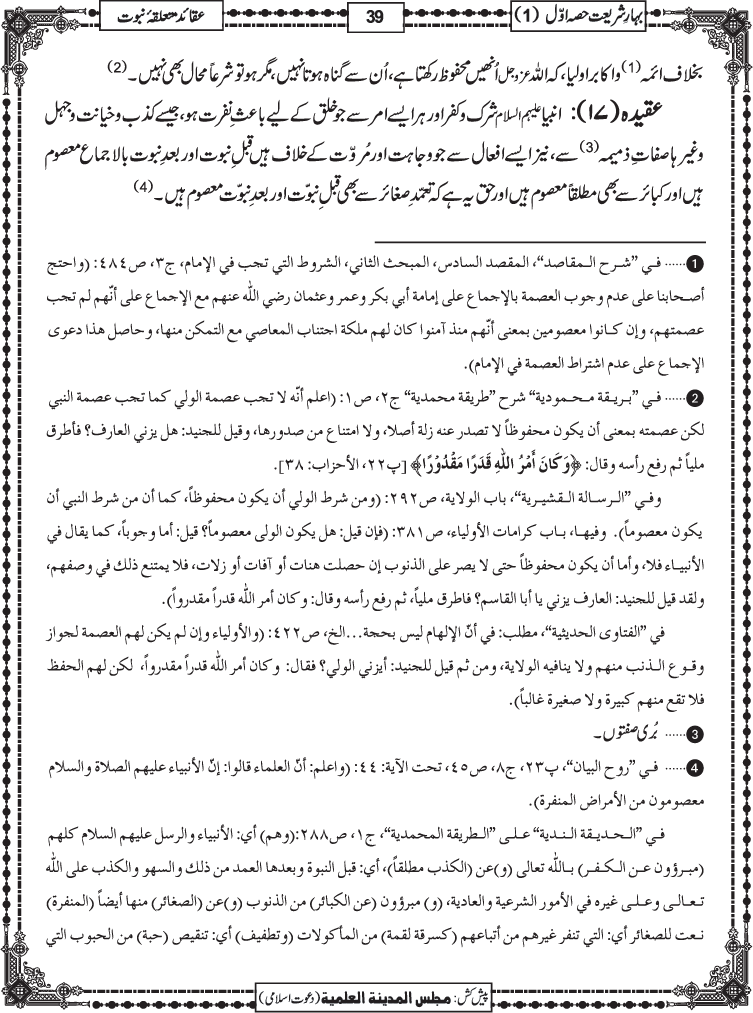 بہارِ شریعت حصہ اوّل (1)
39
عقائد متعلقۂ نبوت
بخلاف ائمہ (1) و اکابر اولیا، کہ اللہ عزوجل اُنھیں محفوظ رکھتا ہے، اُن سے گناہ ہوتا نہیں، مگر ہو تو شرعاً محال بھی نہیں۔ (2)
عقیدہ (۱۷): انبیا علیہم السلام شرک و کفر اور ہر ایسے امر سے جو خلق کے لیے باعثِ نفرت ہو، جیسے کذب و خیانت و جہل
وغیرہا صفاتِ ذمیمہ (3) سے، نیز ایسے افعال سے جو وجاہت اور مُروّت کے خلاف ہیں قبلِ نبوت اور بعدِ نبوت بالاجماع معصوم
ہیں اور کبائر سے بھی مطلقاً معصوم ہیں اور حق یہ ہے کہ تعمّدِ صغائر سے بھی قبلِ نبوّت اور بعدِ نبوّت معصوم ہیں۔ (4)
1 ...... فـي ”شـرح الـمقاصد“، المقصد السادس، المبحث الثاني، الشروط التي تجب في الإمام، ج۳، ص۴۸۴: (واحتج
أصـحابنا على عدم وجوب العصمة بالإجماع على إمامة أبي بكر وعمر وعثمان رضي اللّٰه عنهم مع الإجماع على أنّهم لم تجب
عصمتهم، وإن كـانوا معصومين بمعنى أنّهم منذ آمنوا كان لهم ملكة اجتناب المعاصي مع التمكن منها، وحاصل هذا دعوى
الإجماع على عدم اشتراط العصمة في الإمام).
2 ...... فـي ”بـريـقة مـحـمودية“ شرح ”طريقة محمدية“ ج۲، ص۱: (اعلم أنّه لا تجب عصمة الولي كما تجب عصمة النبي
لكن عصمته بمعنى أن يكون محفوظاً لا تصدر عنه زلة أصلا، ولا امتناع من صدورها، وقيل للجنيد: هل يزني العارف؟ فأطرق
ملياً ثم رفع رأسه وقال: ﴿وَكَانَ أَمْرُ اللّٰهِ قَدَرًا مَقْدُوْرًا﴾ [پ۲۲، الأحزاب: ۳۸].
وفـي ”الـرسـالة الـقشيـرية“، باب الولاية، ص۲۹۲: (ومن شرط الولي أن يكون محفوظاً، كما أن من شرط النبي أن
يكون معصوماً). وفيهـا، بـاب كرامات الأولياء، ص۳۸۱: (فإن قيل: هل يكون الولى معصوماً؟ قيل: أما وجوباً، كما يقال في
الأنبيـاء فلا، وأما أن يكون محفوظاً حتى لا يصر على الذنوب إن حصلت هنات أو آفات أو زلات، فلا يمتنع ذلك في وصفهم،
ولقد قيل للجنيد: العارف يزني يا أبا القاسم؟ فاطرق ملياً، ثم رفع رأسه وقال: وكان أمر اللّٰه قدراً مقدروا).
في ”الفتاوى الحديثية“، مطلب: في أنّ الإلهام ليس بحجة...الخ، ص۴۲۲: (والأولياء وإن لم يكن لهم العصمة لجواز
وقـوع الـذنب منهم ولا ينافيه الولاية، ومن ثم قيل للجنيد: أيزني الولي؟ فقال: وكان أمر اللّٰه قدراً مقدرواً، لكن لهم الحفظ
فلا تقع منهم كبيرة ولا صغيرة غالباً).
3 ...... بُری صفتوں۔
4 ...... فـي ”روح البيان“، پ۲۳، ج۸، ص۴۵، تحت الآية: ۴۴: (واعلم: أنّ العلماء قالوا: إنّ الأنبياء عليهم الصلاة والسلام
معصومون من الأمراض المنفرة).
فـي ”الـحـديـقة الـنـدية“ عـلـى ”الـطريقة المحمدية“، ج۱، ص۲۸۸:(وهم) أي: الأنبياء والرسل عليهم السلام كلهم
(مبـرؤون عـن الـكـفـر) بـاللّٰه تعالى (و)عن (الكذب مطلقاً)، أي: قبل النبوة وبعدها العمد من ذلك والسهو والكذب على اللّٰه
تـعـالـى وعـلـى غيره في الأمور الشرعية والعادية، (و) مبرؤون (عن الكبائر) من الذنوب (و)عن (الصغائر) منها أيضاً (المنفرة)
نـعت للصغائر أي: التي تنفر غيرهم من أتباعهم (كسرقة لقمة) من المأكولات (وتطفيف) أي: تنقيص (حبة) من الحبوب التي
پیش کش: مجلس المدينة العلمية (دعوتِ اسلامی)